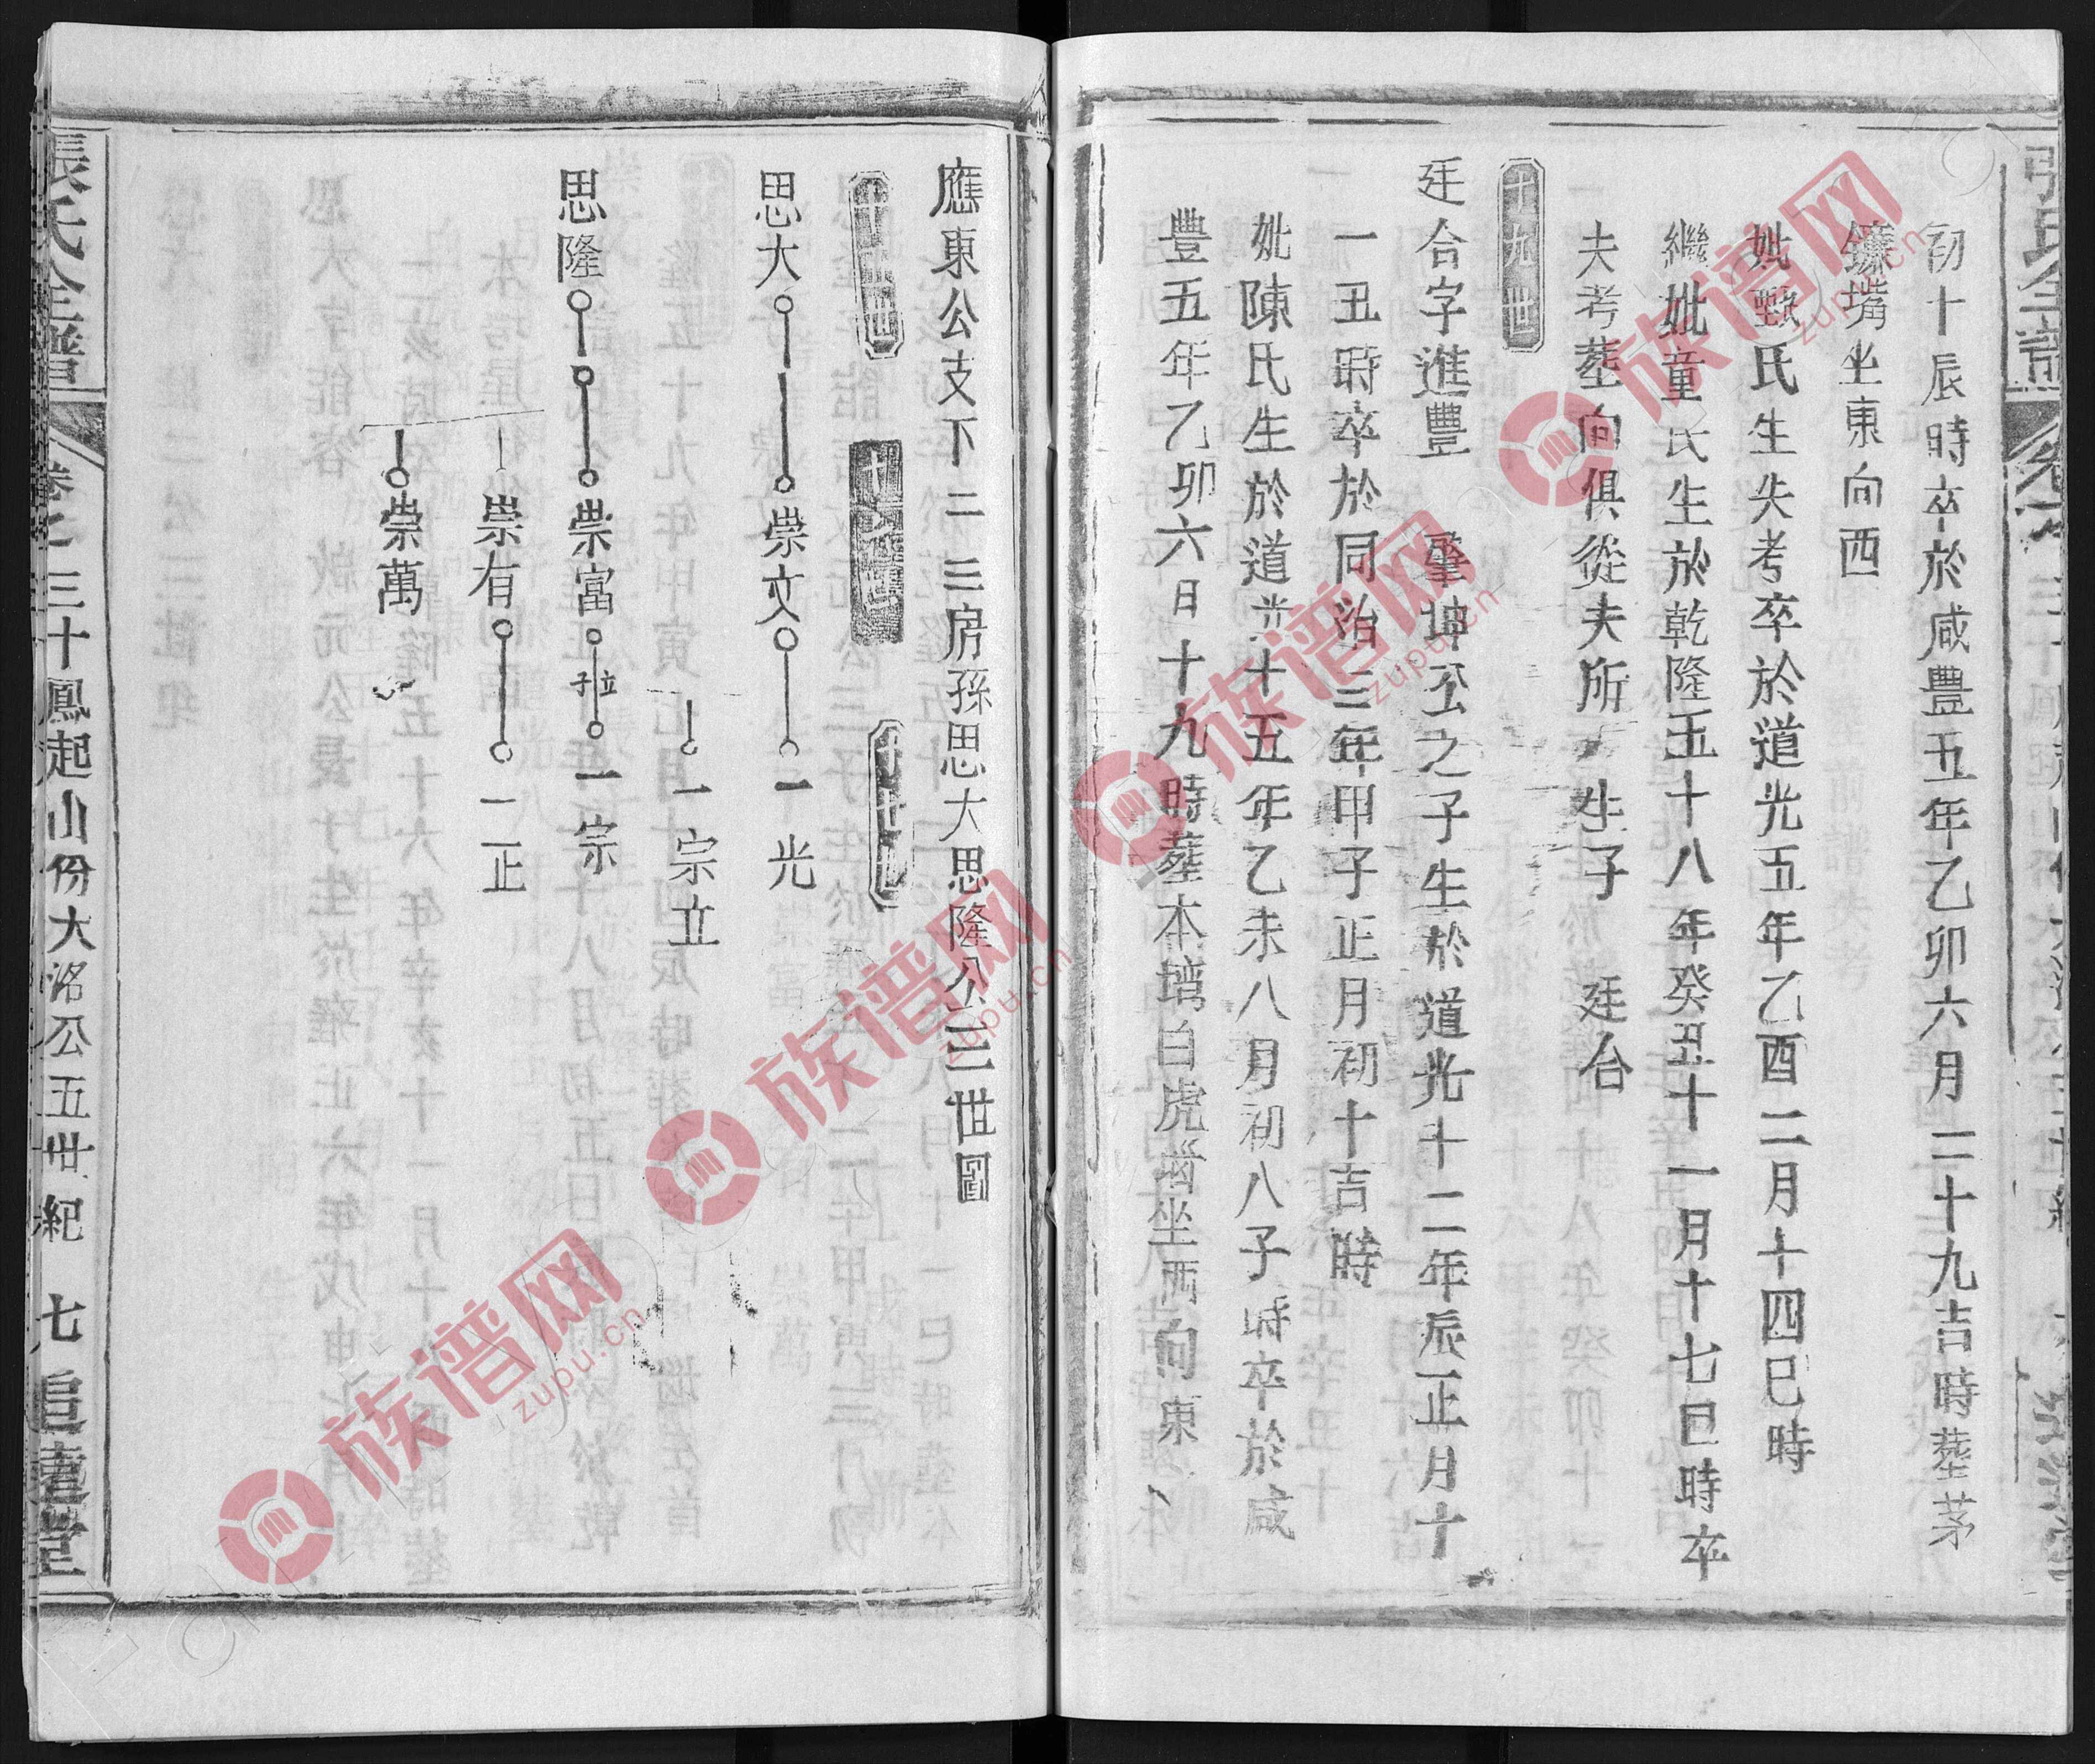 初十辰時卒於咸豐五年乙卯六月二十九吉時塟茅
鐮嘴坐東向西
妣甄氏生失考卒於道光五年乙酉二月十四巳時
繼妣童氏生於乾隆五十八年癸丑十一月十七巳時卒
失考塟向俱從夫所 生子 廷合
十九世
廷合字進豐 肇坤公之子生於道光十二年辰正月十
一丑時卒於同治三年甲子正月初十吉時
妣陳氏生於道光十五年乙未八月初八子時卒於咸
豐五年乙卯六日十九時塟本璃白虎㘭坐西向東
應東公支下二三房孫思大思隆公三世圖
十 世
十 世
十 世
思大 崇文 一光
一宗立
思隆 崇富 立子 一宗
崇有 一正
崇萬
張氏全譜 卷之二 三十鳳起山份大洺公五世紀 七 追遠堂
族谱网 zupu.cn
族谱网 zupu.cn
族谱网 zupu.cn
族谱网 zupu.cn